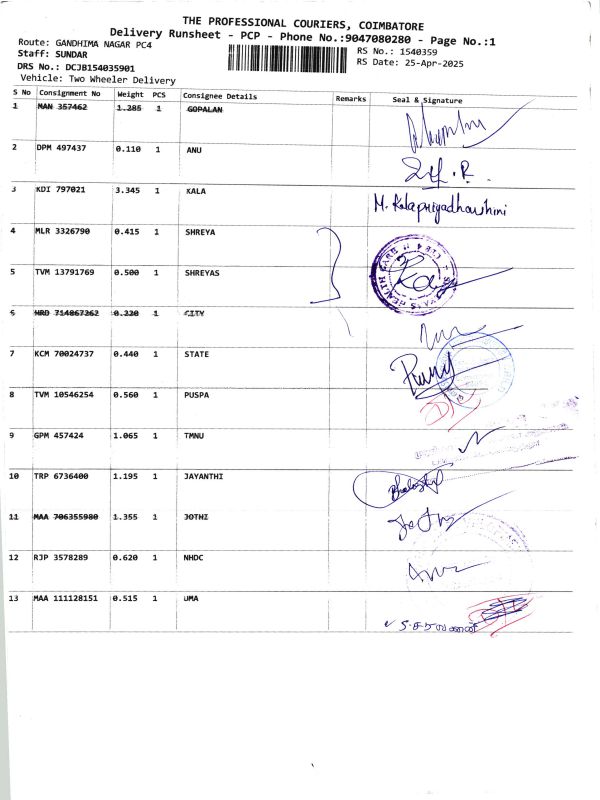 THE PROFESSIONAL COURIERS, COIMBATORE
Delivery Runsheet - PCP - Phone No.:9047080280 - Page No.:1
Route: GANDHIMA NAGAR PC4
RS No.: 1540359
Staff: SUNDAR
RS Date: 25-Apr-2025
DRS No.: DCJB154035901
Vehicle: Two Wheeler Delivery
S No Consignment No Weight PCS Consignee Details Remarks Seal & Signature
1 MAN 357462 1.285 1 GOPALAN
2 DPM 497437 0.110 1 ANU
3 KDI 797021 3.345 1 KALA
M. Kalapriyadharshini
4 MLR 3326790 0.415 1 SHREYA
5 TVM 13791769 0.500 1 SHREYAS
6 HRD 714867262 0.220 1 CITY
7 KCM 70024737 0.440 1 STATE
8 TVM 10546254 0.560 1 PUSPA
9 GPM 457424 1.065 1 TMNU
10 TRP 6736400 1.195 1 JAYANTHI
11 MAA 706355980 1.355 1 JOTHI
Jothy
12 RJP 3578289 0.620 1 NHDC
13 MAA 111128151 0.515 1 UMA